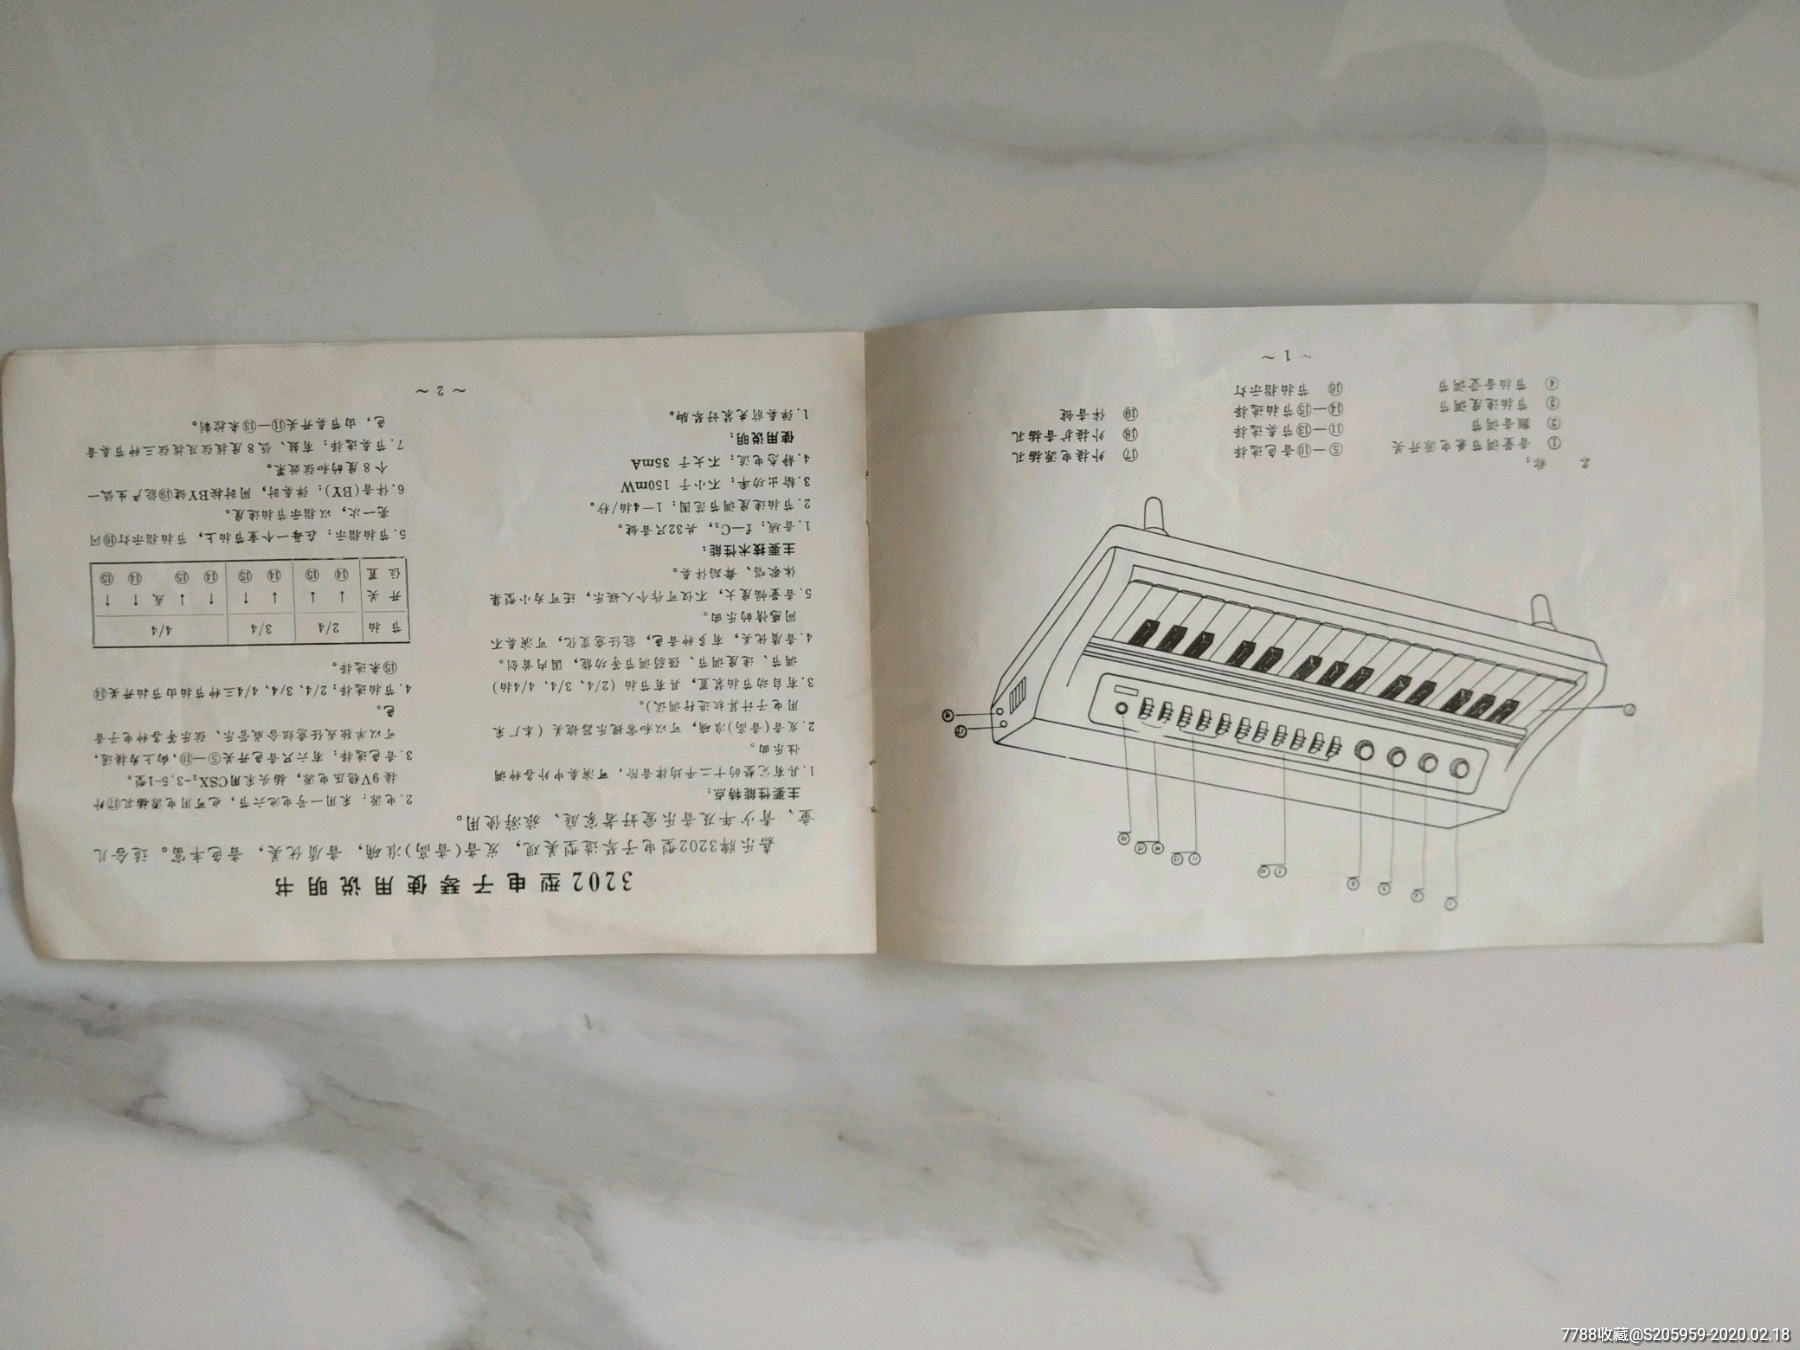 名称：
① 音量调节兼电源开关
② 颤音调节
③ 节拍速度调节
④ 节拍音量调节
⑤—⑩音色选择
⑪—⑬节奏选择
⑭—⑮节拍选择
⑯ 节拍指示灯
⑰ 外接电源插孔
⑱ 外接扩音插孔
⑲ 伴音键
~ 1 ~
3202型电子琴使用说明书
嘉乐牌3202型电子琴造型美观，发音(音高)准确，音质优美，音色丰富。适合儿
童、青少年及音乐爱好者家庭、旅游使用。
主要性能特点：
1.具有完整的十二平均律音阶，可演奏中外各种调
性乐曲。
2.发音(音高)准确，可以和常规乐器统关（本厂采
用电子计算机进行调试）。
3.有自动节拍装置，具有节拍（2/4、3/4、4/4拍）
调节、速度调节、强弱调节等功能，国内首创。
4.音质优美，有多种音色，能任意变化，可演奏不
同感情的乐曲。
5.音量幅度大，不仅可作个人娱乐，还可为小型集
体歌唱、舞蹈伴奏。
主要技术性能：
1.音域：f—C₃，共32只音键。
2.节拍速度调节范围：1—4拍/秒。
3.输出功率：不小于150mW
4.静态电流：不大于35mA
使用说明：
1.弹奏前先装好琴脚。
2.电源：采用一号电池六节，也可用电源插孔⑰外
接9V稳压电源，插头采用CSX₂-3.5-1型。
3.音色选择：有六只音色开关⑤—⑩，向上为接通，
可以单独或任意组合成管乐、弦乐等多种电子音
色。
4.节拍选择：2/4、3/4、4/4三种节拍由节拍开关⑭
⑮来选择。
节拍 2/4 3/4 4/4
开关 ↓ ↓ ↓ ↑ ↑ ↓ 或 ↑ ↑
位置 ⑭ ⑮ ⑭ ⑮ ⑭ ⑮ ⑭ ⑮
5.节拍指示：在每一个重节拍上，节拍指示灯⑯闪
亮一次，以指示节拍速度。
6.伴音(BY)：弹奏时，同时按BY键⑲能产生低一
个8度的和弦效果。
7.节奏选择：有鼓、低8度拨弦及拨弦三种节奏音
色，由节奏开关⑪—⑬来控制。
~ 2 ~
7788收藏@S205959-2020.02.18